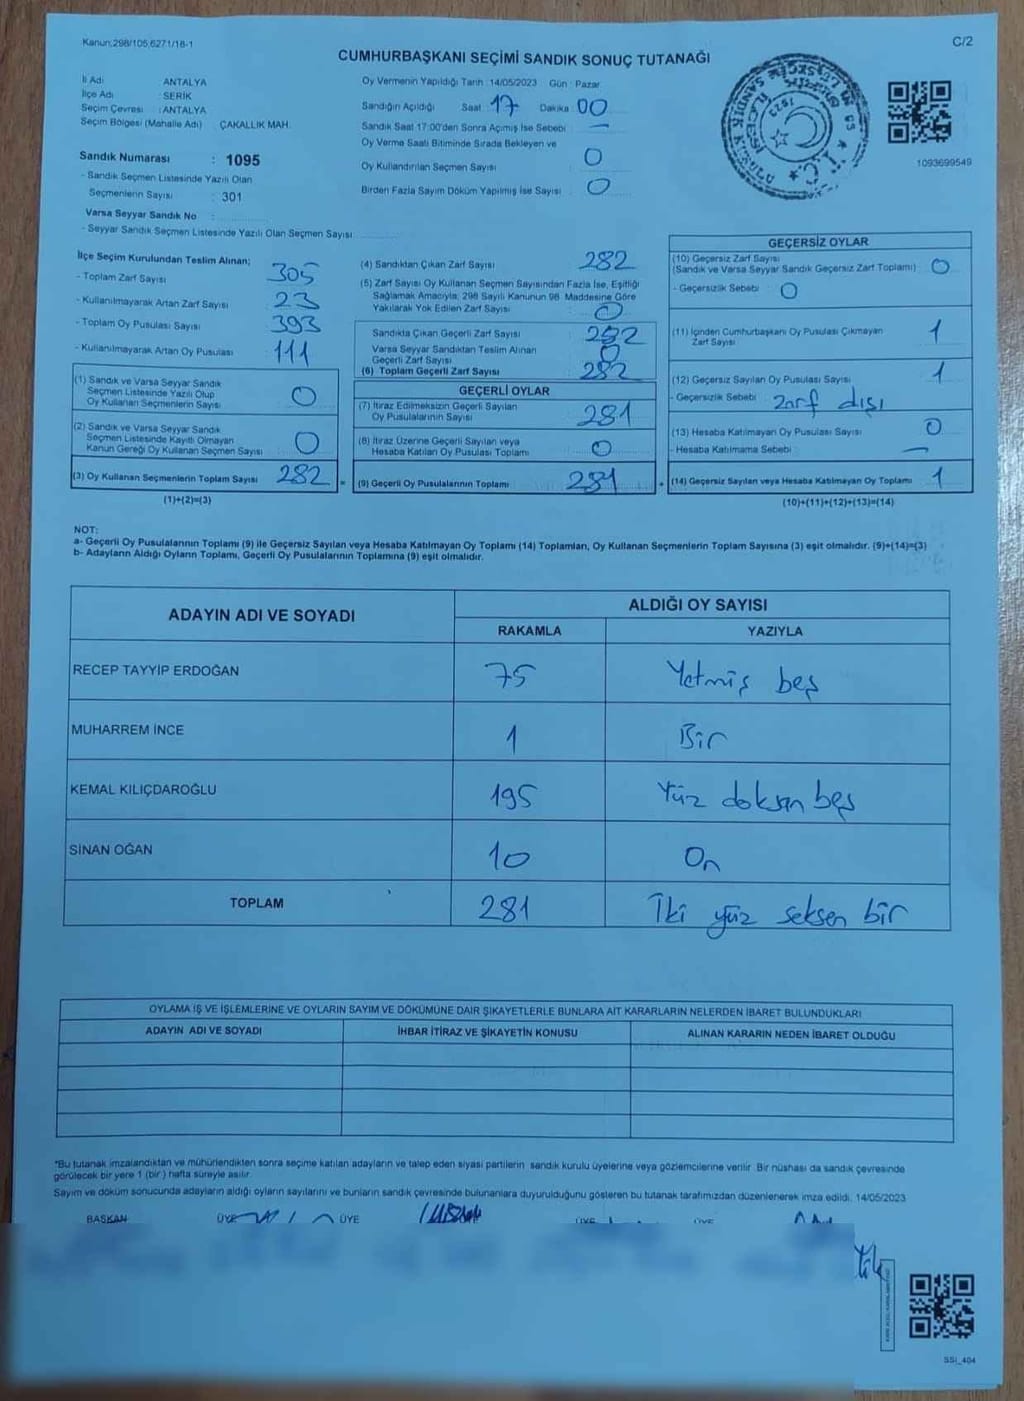 Kanun,298/105,6271/18-1
C/2
CUMHURBAŞKANI SEÇİMİ SANDIK SONUÇ TUTANAĞI
İli Adı ANTALYA
İlçe Adı : SERİK
Seçim Çevresi : ANTALYA
Seçim Bölgesi (Mahalle Adı) ÇAKALLIK MAH.
Sandık Numarası : 1095
- Sandık Seçmen Listesinde Yazılı Olan
Seçmenlerin Sayısı : 301
Varsa Seyyar Sandık No :
- Seyyar Sandık Seçmen Listesinde Yazılı Olan Seçmen Sayısı
Oy Vermenin Yapıldığı Tarih :14/05/2023 Gün : Pazar
Sandığın Açıldığı Saat 17 Dakika 00
Sandık Saat 17:00'den Sonra Açılmış İse Sebebi : —
Oy Verme Saati Bitiminde Sırada Bekleyen ve
Oy Kullandırılan Seçmen Sayısı : 0
Birden Fazla Sayım Döküm Yapılmış İse Sayısı : 0
1093699549
İlçe Seçim Kurulundan Teslim Alınan;
- Toplam Zarf Sayısı 305
- Kullanılmayarak Artan Zarf Sayısı : 23
- Toplam Oy Pusulası Sayısı : 393
- Kullanılmayarak Artan Oy Pusulası : 111
(1) Sandık ve Varsa Seyyar Sandık
Seçmen Listesinde Yazılı Olup
Oy Kullanan Seçmenlerin Sayısı : 0
(2) Sandık ve Varsa Seyyar Sandık
Seçmen Listesinde Kayıtlı Olmayan
Kanun Gereği Oy Kullanan Seçmen Sayısı : 0
(3) Oy Kullanan Seçmenlerin Toplam Sayısı 282
(1)+(2)=(3)
(4) Sandıktan Çıkan Zarf Sayısı 282
(5) Zarf Sayısı Oy Kullanan Seçmen Sayısından Fazla İse, Eşitliği
Sağlamak Amacıyla; 298 Sayılı Kanunun 98. Maddesine Göre
Yakılarak Yok Edilen Zarf Sayısı : 0
Sandıkta Çıkan Geçerli Zarf Sayısı : 282
Varsa Seyyar Sandıktan Teslim Alınan
Geçerli Zarf Sayısı : 0
(6) Toplam Geçerli Zarf Sayısı : 282
GEÇERLİ OYLAR
(7) İtiraz Edilmeksizin Geçerli Sayılan
Oy Pusulalarının Sayısı : 281
(8) İtiraz Üzerine Geçerli Sayılan veya
Hesaba Katılan Oy Pusulası Toplamı : 0
= (9) Geçerli Oy Pusulalarının Toplamı : 281
GEÇERSİZ OYLAR
(10) Geçersiz Zarf Sayısı
(Sandık ve Varsa Seyyar Sandık Geçersiz Zarf Toplamı) : 0
- Geçersizlik Sebebi : 0
(11) İçinden Cumhurbaşkanı Oy Pusulası Çıkmayan
Zarf Sayısı 1
(12) Geçersiz Sayılan Oy Pusulası Sayısı : 1
- Geçersizlik Sebebi : zarf dışı
(13) Hesaba Katılmayan Oy Pusulası Sayısı : 0
- Hesaba Katılmama Sebebi : —
+ (14) Geçersiz Sayılan veya Hesaba Katılmayan Oy Toplamı : 1
(10)+(11)+(12)+(13)=(14)
NOT:
a- Geçerli Oy Pusulalarının Toplamı (9) ile Geçersiz Sayılan veya Hesaba Katılmayan Oy Toplamı (14) Toplamları, Oy Kullanan Seçmenlerin Toplam Sayısına (3) eşit olmalıdır. (9)+(14)=(3)
b- Adayların Aldığı Oyların Toplamı, Geçerli Oy Pusulalarının Toplamına (9) eşit olmalıdır.
ADAYIN ADI VE SOYADI
ALDIĞI OY SAYISI
RAKAMLA YAZIYLA
RECEP TAYYİP ERDOĞAN 75 Yetmiş beş
MUHARREM İNCE 1 Bir
KEMAL KILIÇDAROĞLU 195 Yüz doksan beş
SİNAN OĞAN 10 On
TOPLAM 281 İki yüz seksen bir
OYLAMA İŞ VE İŞLEMLERİNE VE OYLARIN SAYIM VE DÖKÜMÜNE DAİR ŞİKAYETLERLE BUNLARA AİT KARARLARIN NELERDEN İBARET BULUNDUKLARI
ADAYIN ADI VE SOYADI İHBAR İTİRAZ VE ŞİKAYETİN KONUSU ALINAN KARARIN NEDEN İBARET OLDUĞU
*Bu tutanak imzalandıktan ve mühürlendikten sonra seçime katılan adayların ve talep eden siyasi partilerin sandık kurulu üyelerine veya gözlemcilerine verilir. Bir nüshası da sandık çevresinde
görülecek bir yere 1 (bir) hafta süreyle asılır.
Sayım ve döküm sonucunda adayların aldığı oyların sayılarını ve bunların sandık çevresinde bulunanlara duyurulduğunu gösteren bu tutanak tarafımızdan düzenlenerek imza edildi. 14/05/2023
BAŞKAN ÜYE ÜYE ÜYE ÜYE
SSİ_404